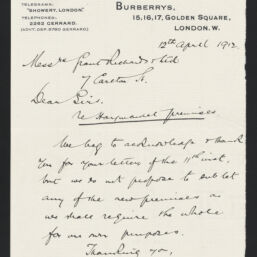 TELEGRAMS:
"SHOWERY, LONDON"
TELEPHONES:
2262 GERRARD.
BURBERRYS,
15, 16, 17, GOLDEN SQUARE,
LONDON. W.
12th April 1912
Messrs Grant Richards & Ltd
7 Carlton St.
Dear Sirs.
re Haymarket premises
We beg to acknowledge & thank
you for your letter of the 11th inst.
but we do not propose to sub let
any of the new premises as
we shall require the whole
for our own purposes.
Thanking you,